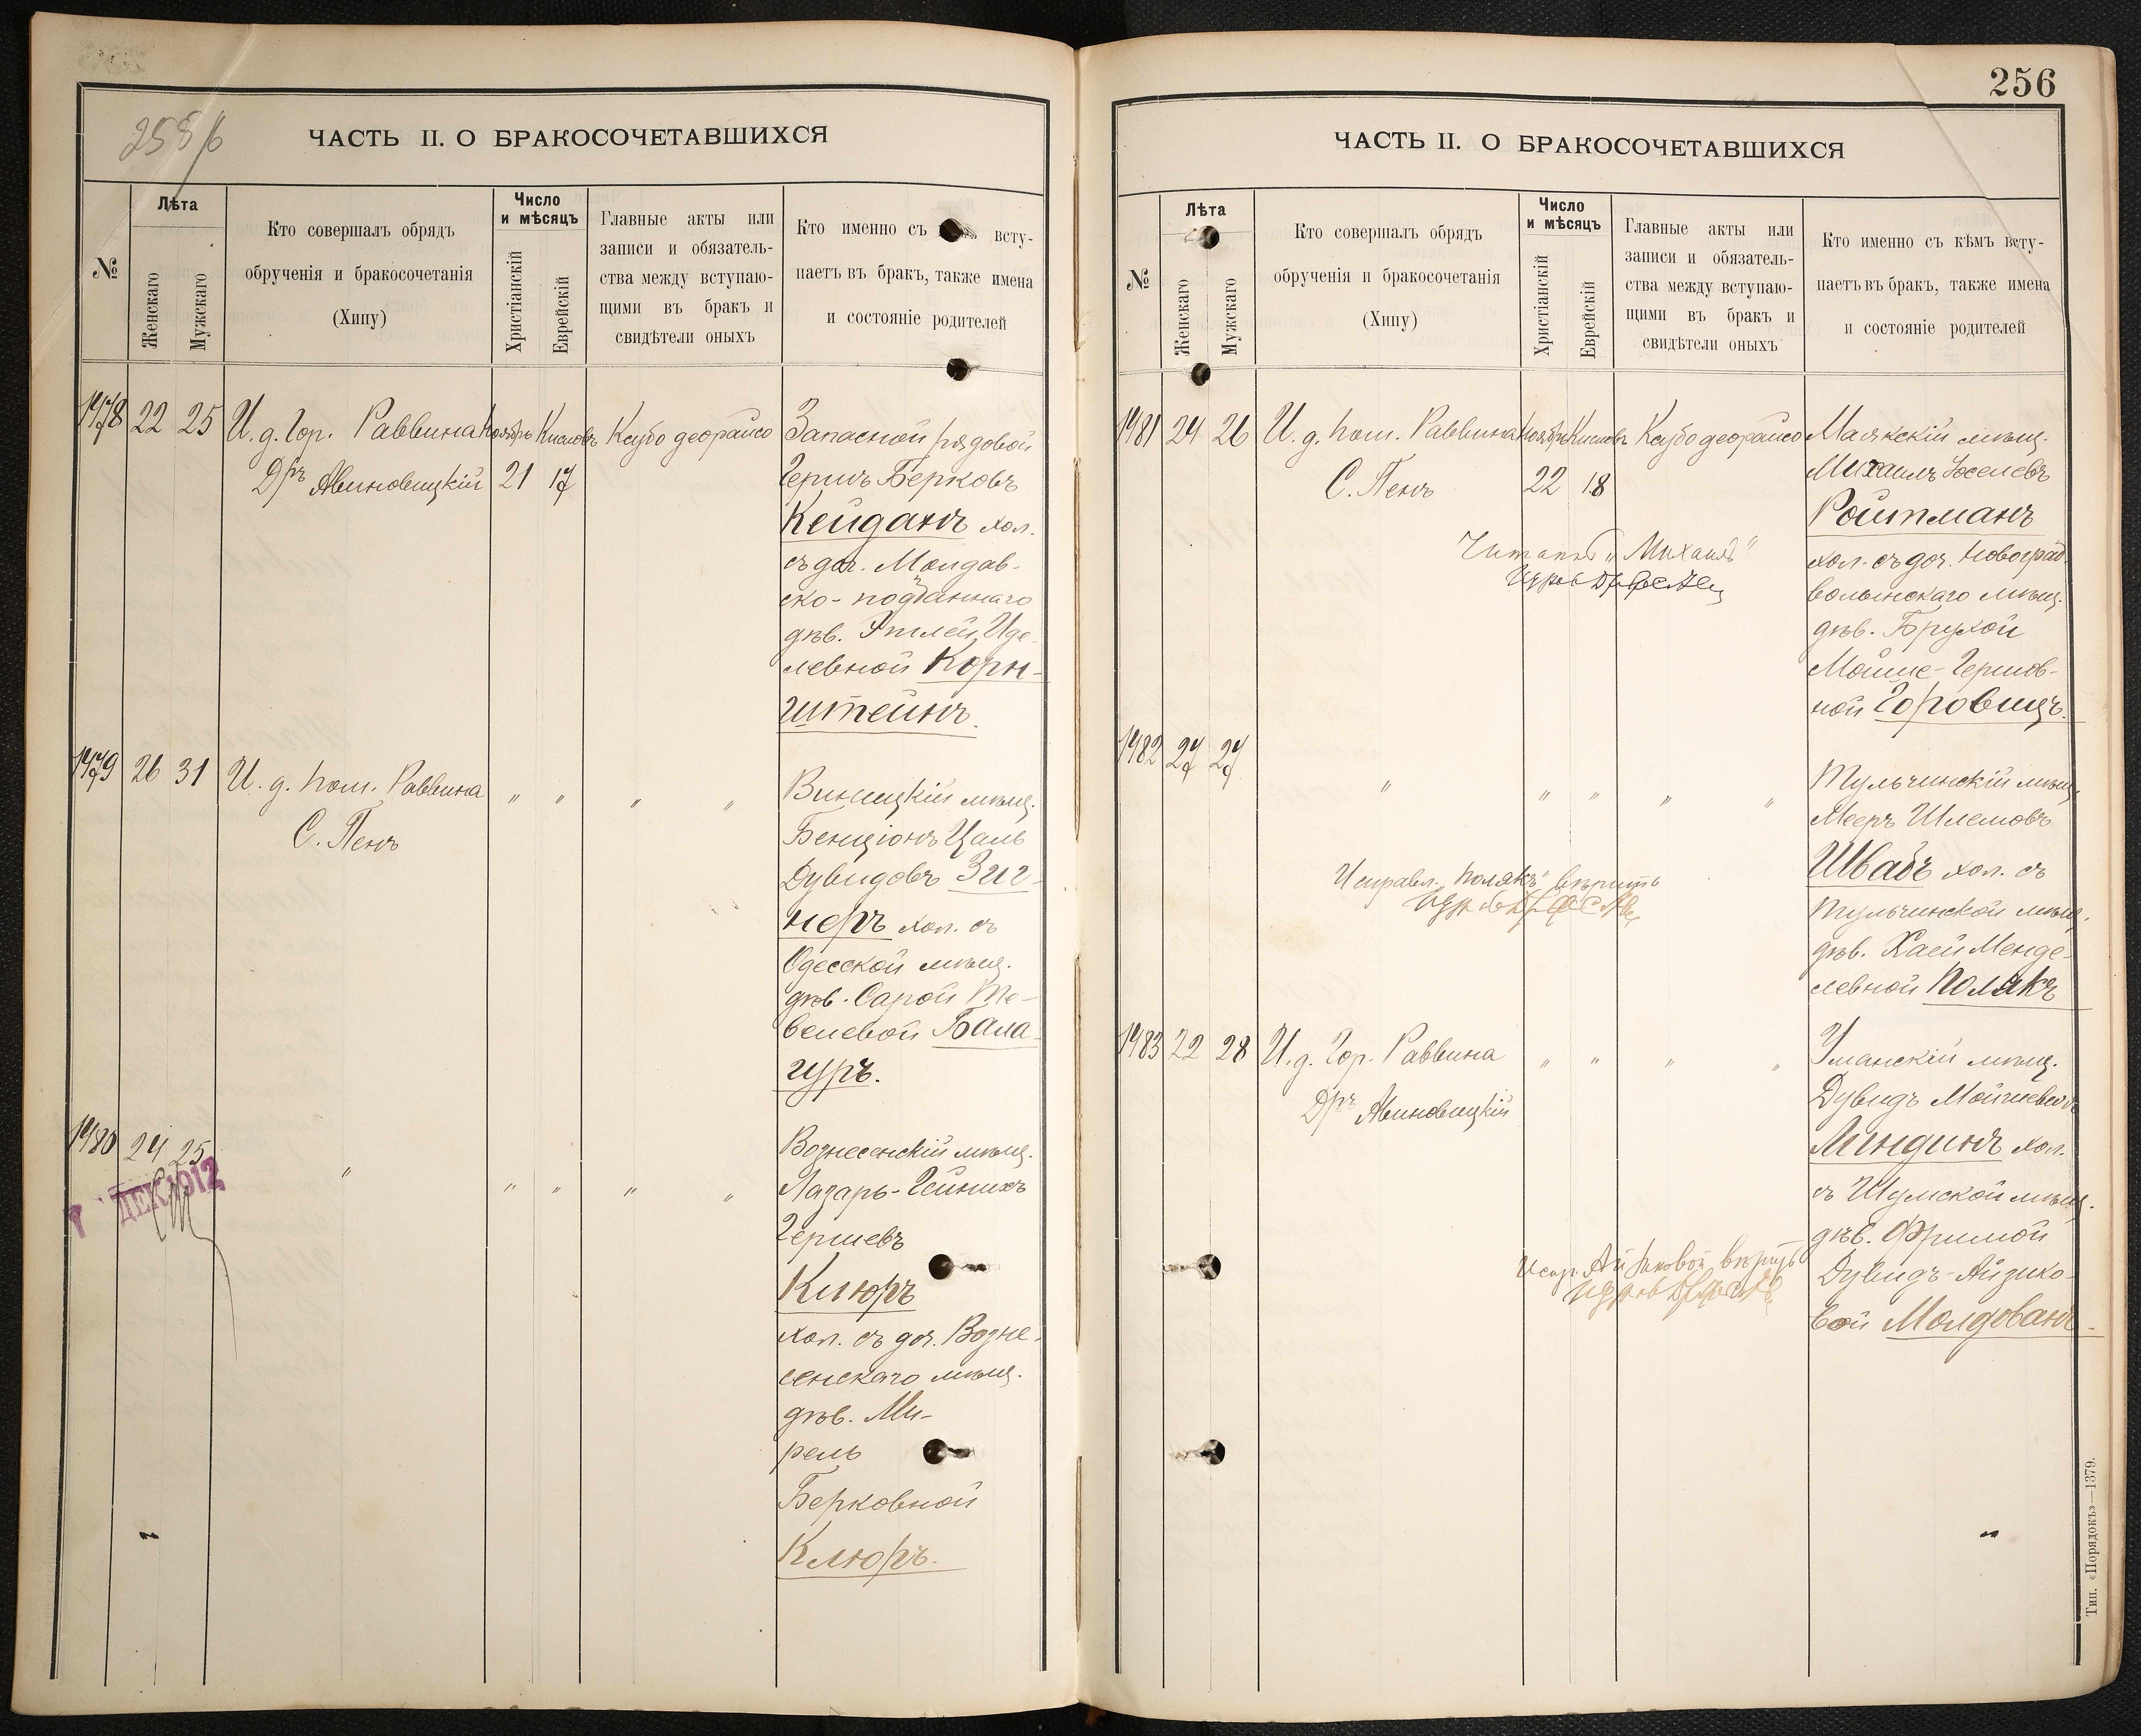 2586
ЧАСТЬ II. О БРАКОСОЧЕТАВШИХСЯ
№
Лѣта
Женскаго
Мужскаго
Кто совершалъ обрядъ
обрученія и бракосочетанія
(Хипу)
Число
и мѣсяцъ
Христіанскій
Еврейскій
Главные акты или
записи и обязатель-
ства между вступаю-
щими въ бракъ и
свидѣтели оныхъ
Кто именно съ всту-
паетъ въ бракъ, также имена
и состояніе родителей
1478 22 25 И. д. Гор. Раввина Ноябрь Кислевъ Кеубо деорайсо
Дръ Авиновицкій 21 17
Запасной рядовой
Гершъ Берковъ
Кейданъ хол.
съ доч. Молдав-
ско-подданнаго
дѣв. Этлей Иде-
левной Корн-
штейнъ.
1479 26 31 И. д. пом. Раввина " " " "
С. Пенъ
Виницкій мѣщ.
Бенціонъ Цаль
Дувидовъ Зиг-
неръ хол. съ
Одесской мѣщ.
дѣв. Сарой Те-
велевой Бала-
гуръ.
1480 24 25 " " " " "
ДЕК 1912
Вознесенскій мѣщ.
Лазарь-Гейнихъ
Гершевъ
Клюръ
хол. съ доч. Возне-
сенскаго мѣщ.
дѣв. Ми-
рель
Берковной
Клюръ.
256
ЧАСТЬ II. О БРАКОСОЧЕТАВШИХСЯ
№
Лѣта
Женскаго
Мужскаго
Кто совершалъ обрядъ
обрученія и бракосочетанія
(Хипу)
Число
и мѣсяцъ
Христіанскій
Еврейскій
Главные акты или
записи и обязатель-
ства между вступаю-
щими въ бракъ и
свидѣтели оныхъ
Кто именно съ кѣмъ всту-
паетъ въ бракъ, также имена
и состояніе родителей
1481 24 26 И. д. пом. Раввина Ноябрь Кислевъ Кеубо деорайсо
С. Пенъ 22 18
Читать "Михаилъ"
Маякскій мѣщ.
Михаилъ Іоселевъ
Ройтманъ
хол. съ доч. Новоград
волынскаго мѣщ.
дѣв. Брухой
Мойше-Гершов-
ной Горовицъ.
1482 27 27 " " " " "
Исправл. "Полякъ" вѣрить
Тульчинскій мѣщ.
Мееръ Шлемовъ
Швабъ хол. съ
тульчинской мѣщ.
дѣв. Хаей Менде-
левной Полякъ
1483 22 28 И. д. Гор. Раввина " " " "
Дръ Авиновицкій
Уманскій мѣщ.
Дувидъ Мойшевовъ
Линдинъ хол.
съ Шумской мѣщ.
дѣв. Фримой
Дувидъ-Айзико-
вой Молдованъ.
Тип. «Порядокъ»—1379.